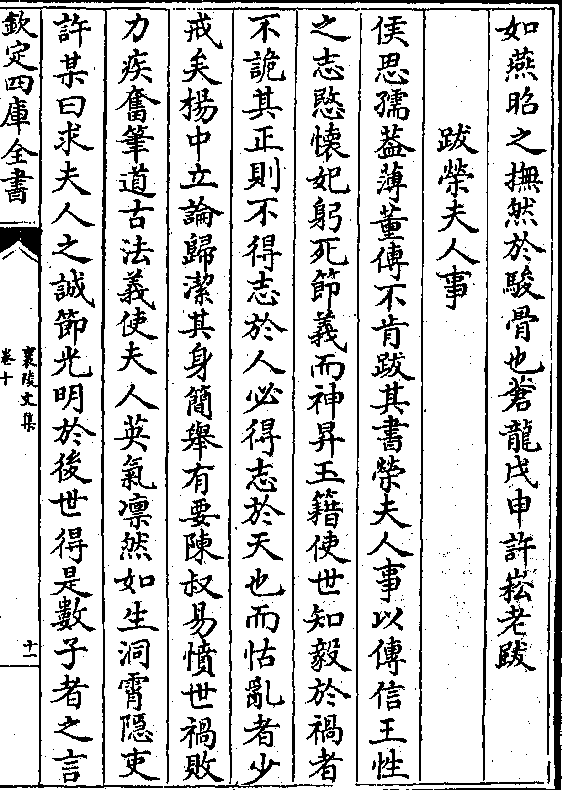 如燕昭之撫然於駿骨也蒼龍戊申許崧老跋
跋榮夫人事
侯思孺葢薄董傅不肯跋其書榮夫人事以傳信王性
之志愍懷妃躬死節義而神昇玉籍使世知毅於禍者
不詭其正則不得志於人必得志於天也而怙亂者少
戒矣楊中立論歸潔其身簡舉有要陳叔易憤世禍敗
力疾奮筆道古法義使夫人英氣凛然如生洞霄隠吏
許某曰求夫人之誠節光明於後世得是數子者之言
欽定四庫全書
襄陵文集
卷十
十一